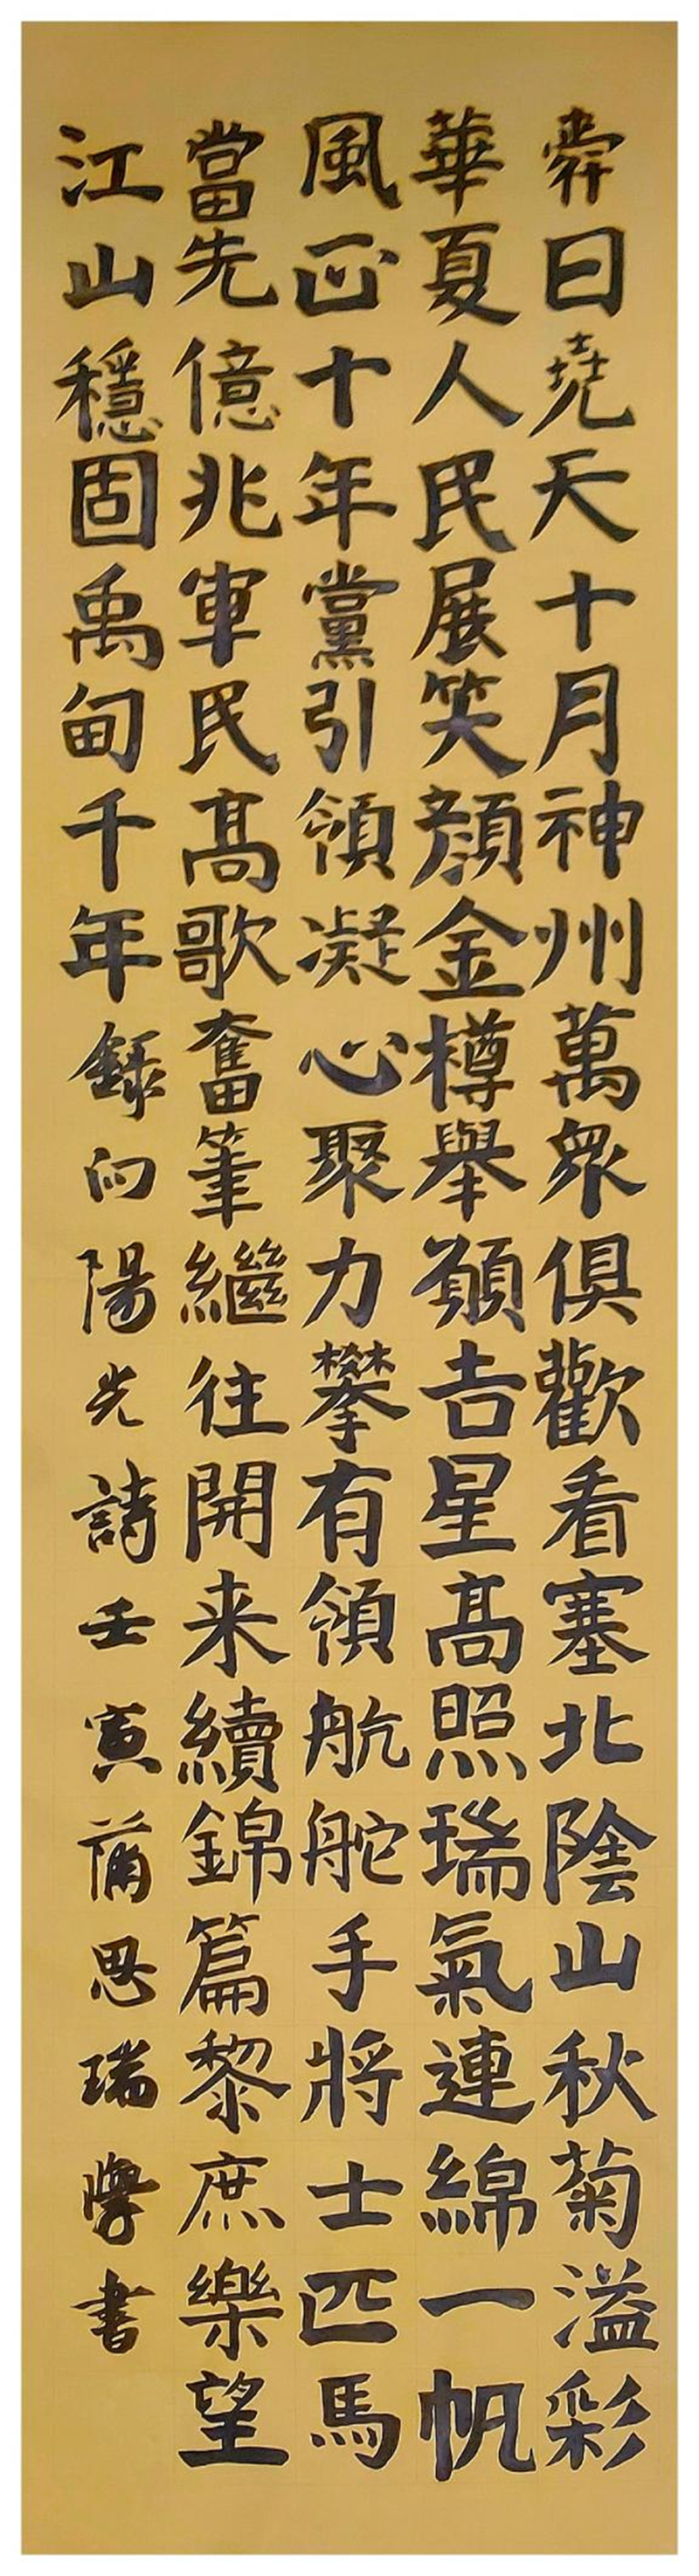 舜曰堯天十月神州萬眾俱歡看塞北陰山秋菊溢彩
華夏人民展笑顏金樽舉願吉星高照瑞氣連綿一帆
風正十年黨引領凝心聚力攀有領航舵手將士匹馬
當先億兆軍民高歌奮筆繼往開来續錦篇黎庶樂望
江山穩固禹甸千年錄向陽光詩壬寅蒲思瑞學書